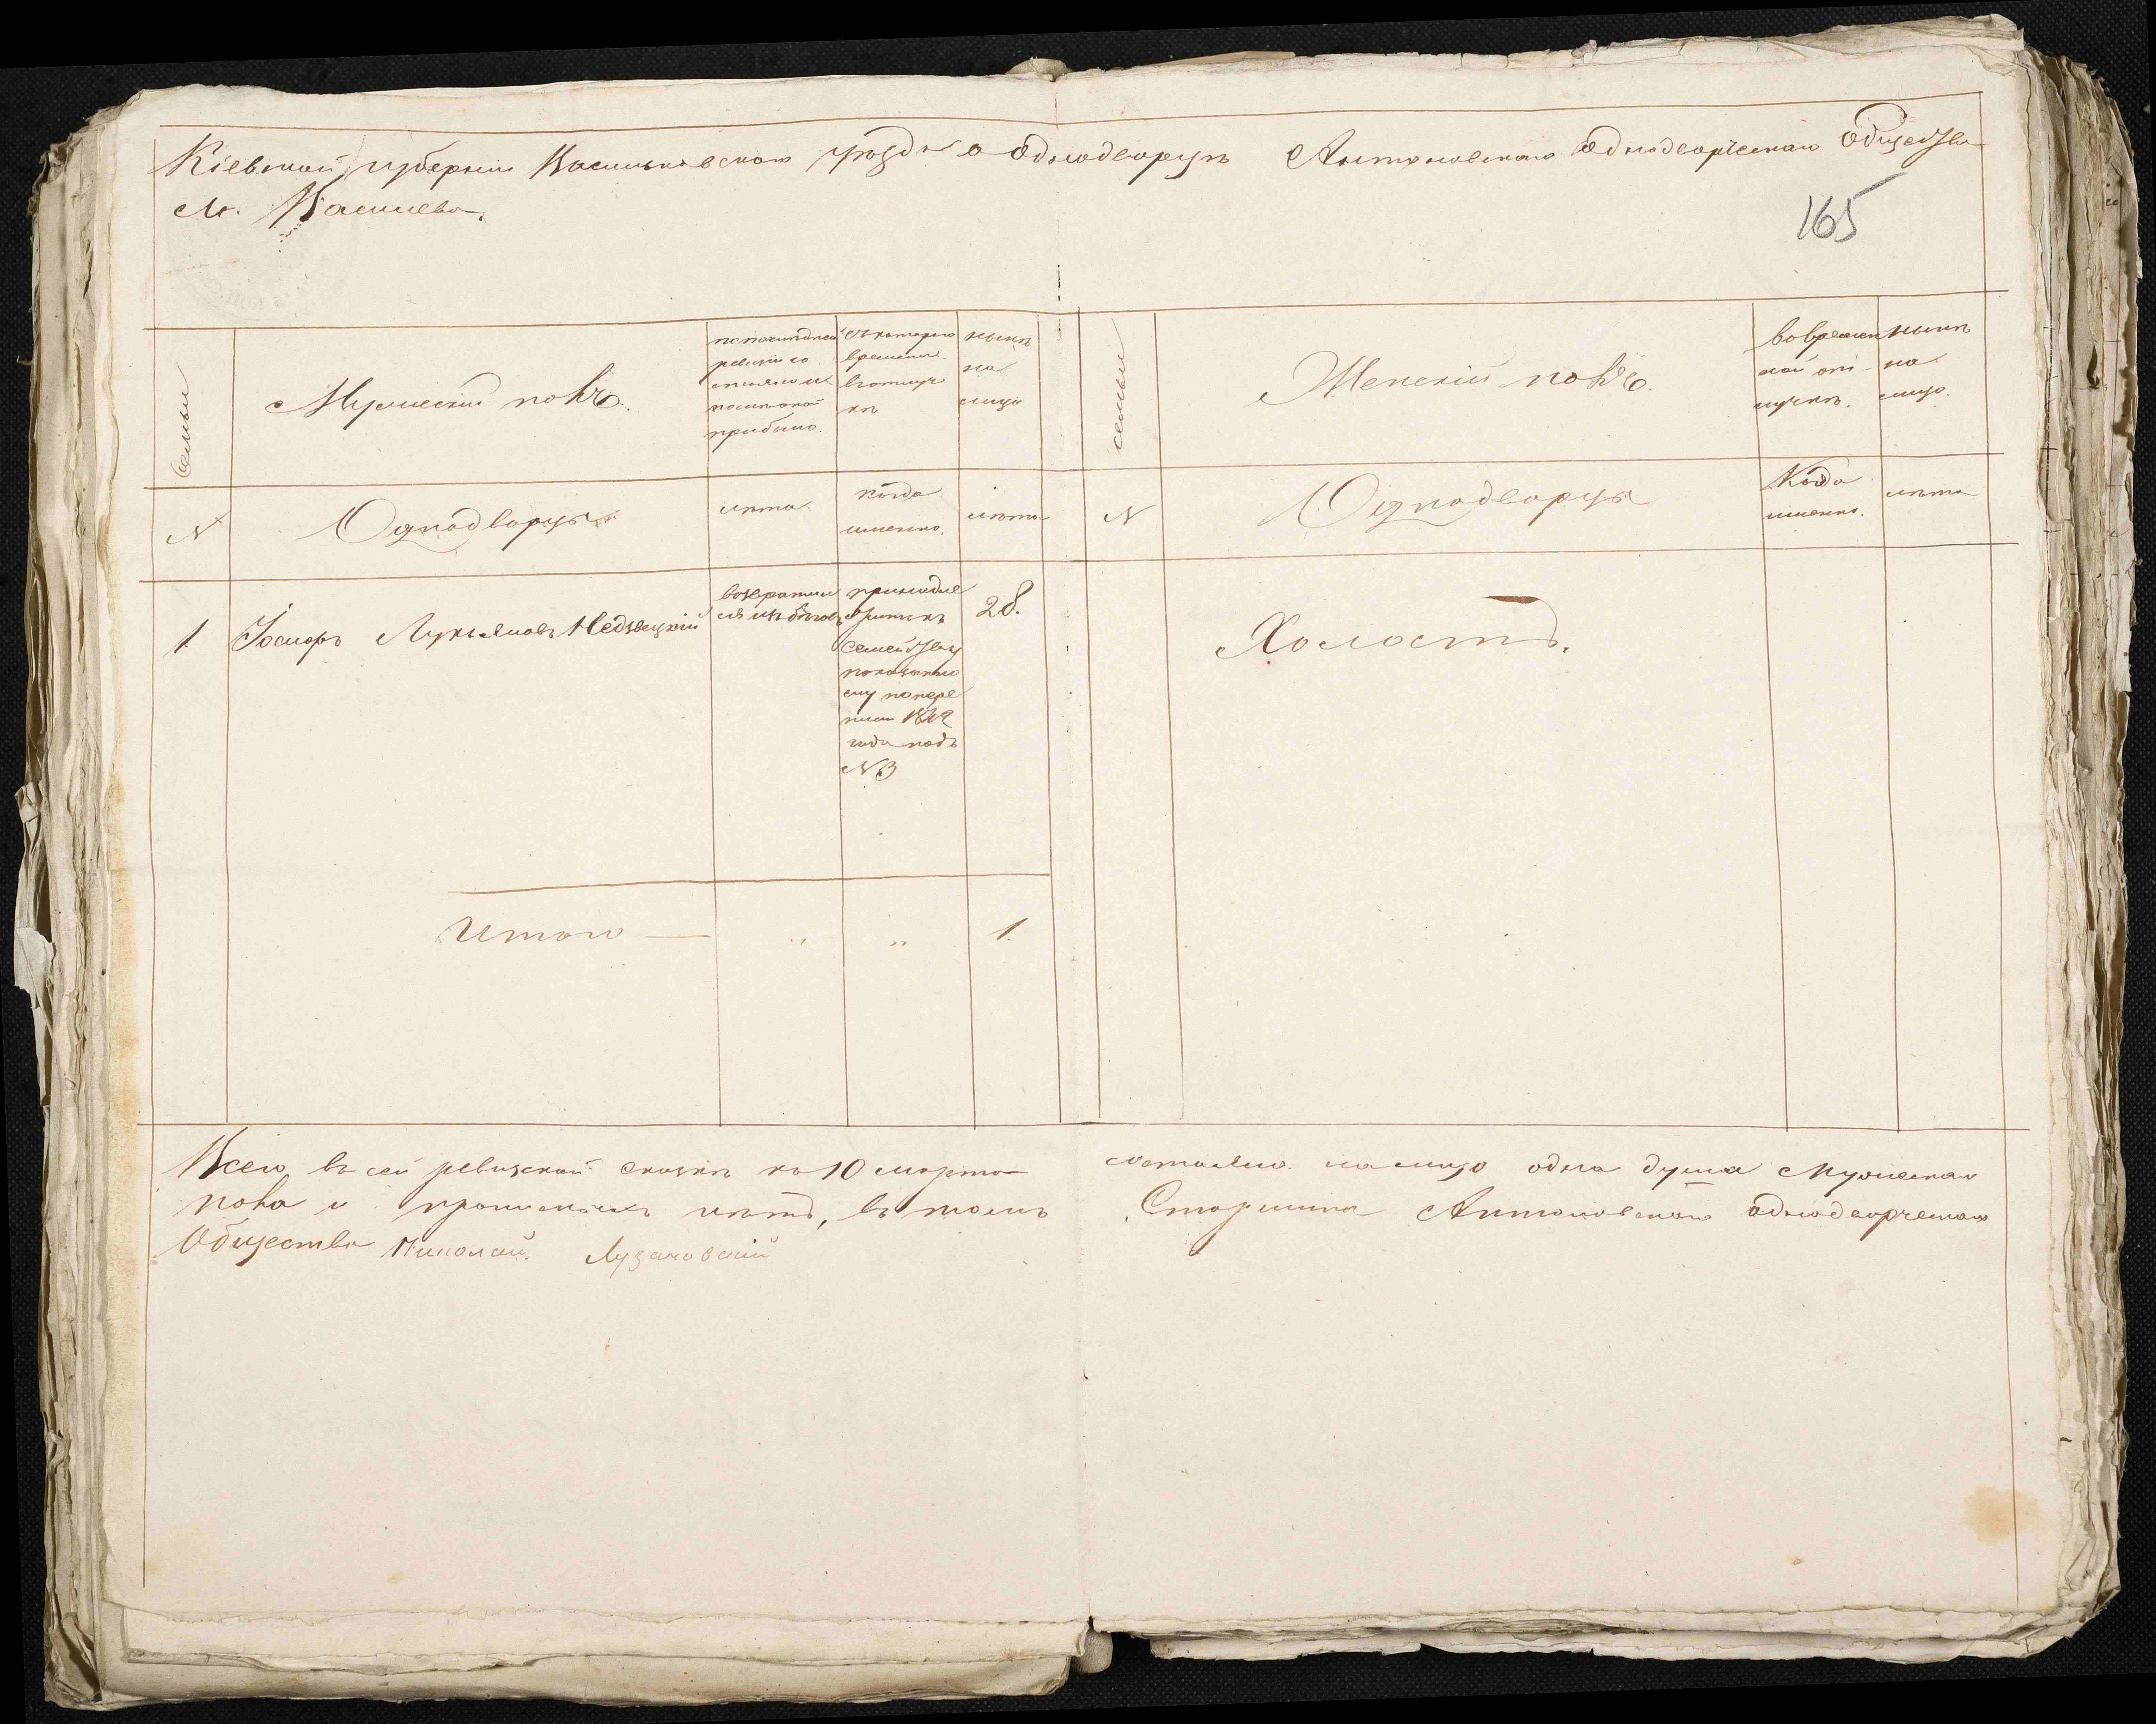 Кіевской губерніи Васильковскаго уѣзда о однодворцѣ Антоновскаго однодворческаго Общества
м. Кашиева.
165
Семьи
Мужескій полъ.
по послѣдней ревизіи состояло и послѣ оной прибыло.
Съ котораго времени въ отлучкѣ
нынѣ на лицо
семьи
Женскій полъ.
во временной отлучкѣ.
нынѣ на лицо.
№
Однодворцы
лѣта
когда именно.
лѣта
№
Однодворцы
Когда именно.
лѣта
1
Іосифъ Лукьяновъ Недзвецкій
возвратился изъ бѣговъ
принадлежитъ къ
семейству
показанно
му по пере
писи
года подъ
№ 3
28.
Холостъ.
Итого — „ „ 1.
Всего въ сей ревизской сказкѣ на 10 марта состояло на лицо одна душа мужескаго
пола и прописныхъ нѣтъ, въ томъ Старшина Антоновскаго однодворческаго
Общества Николай